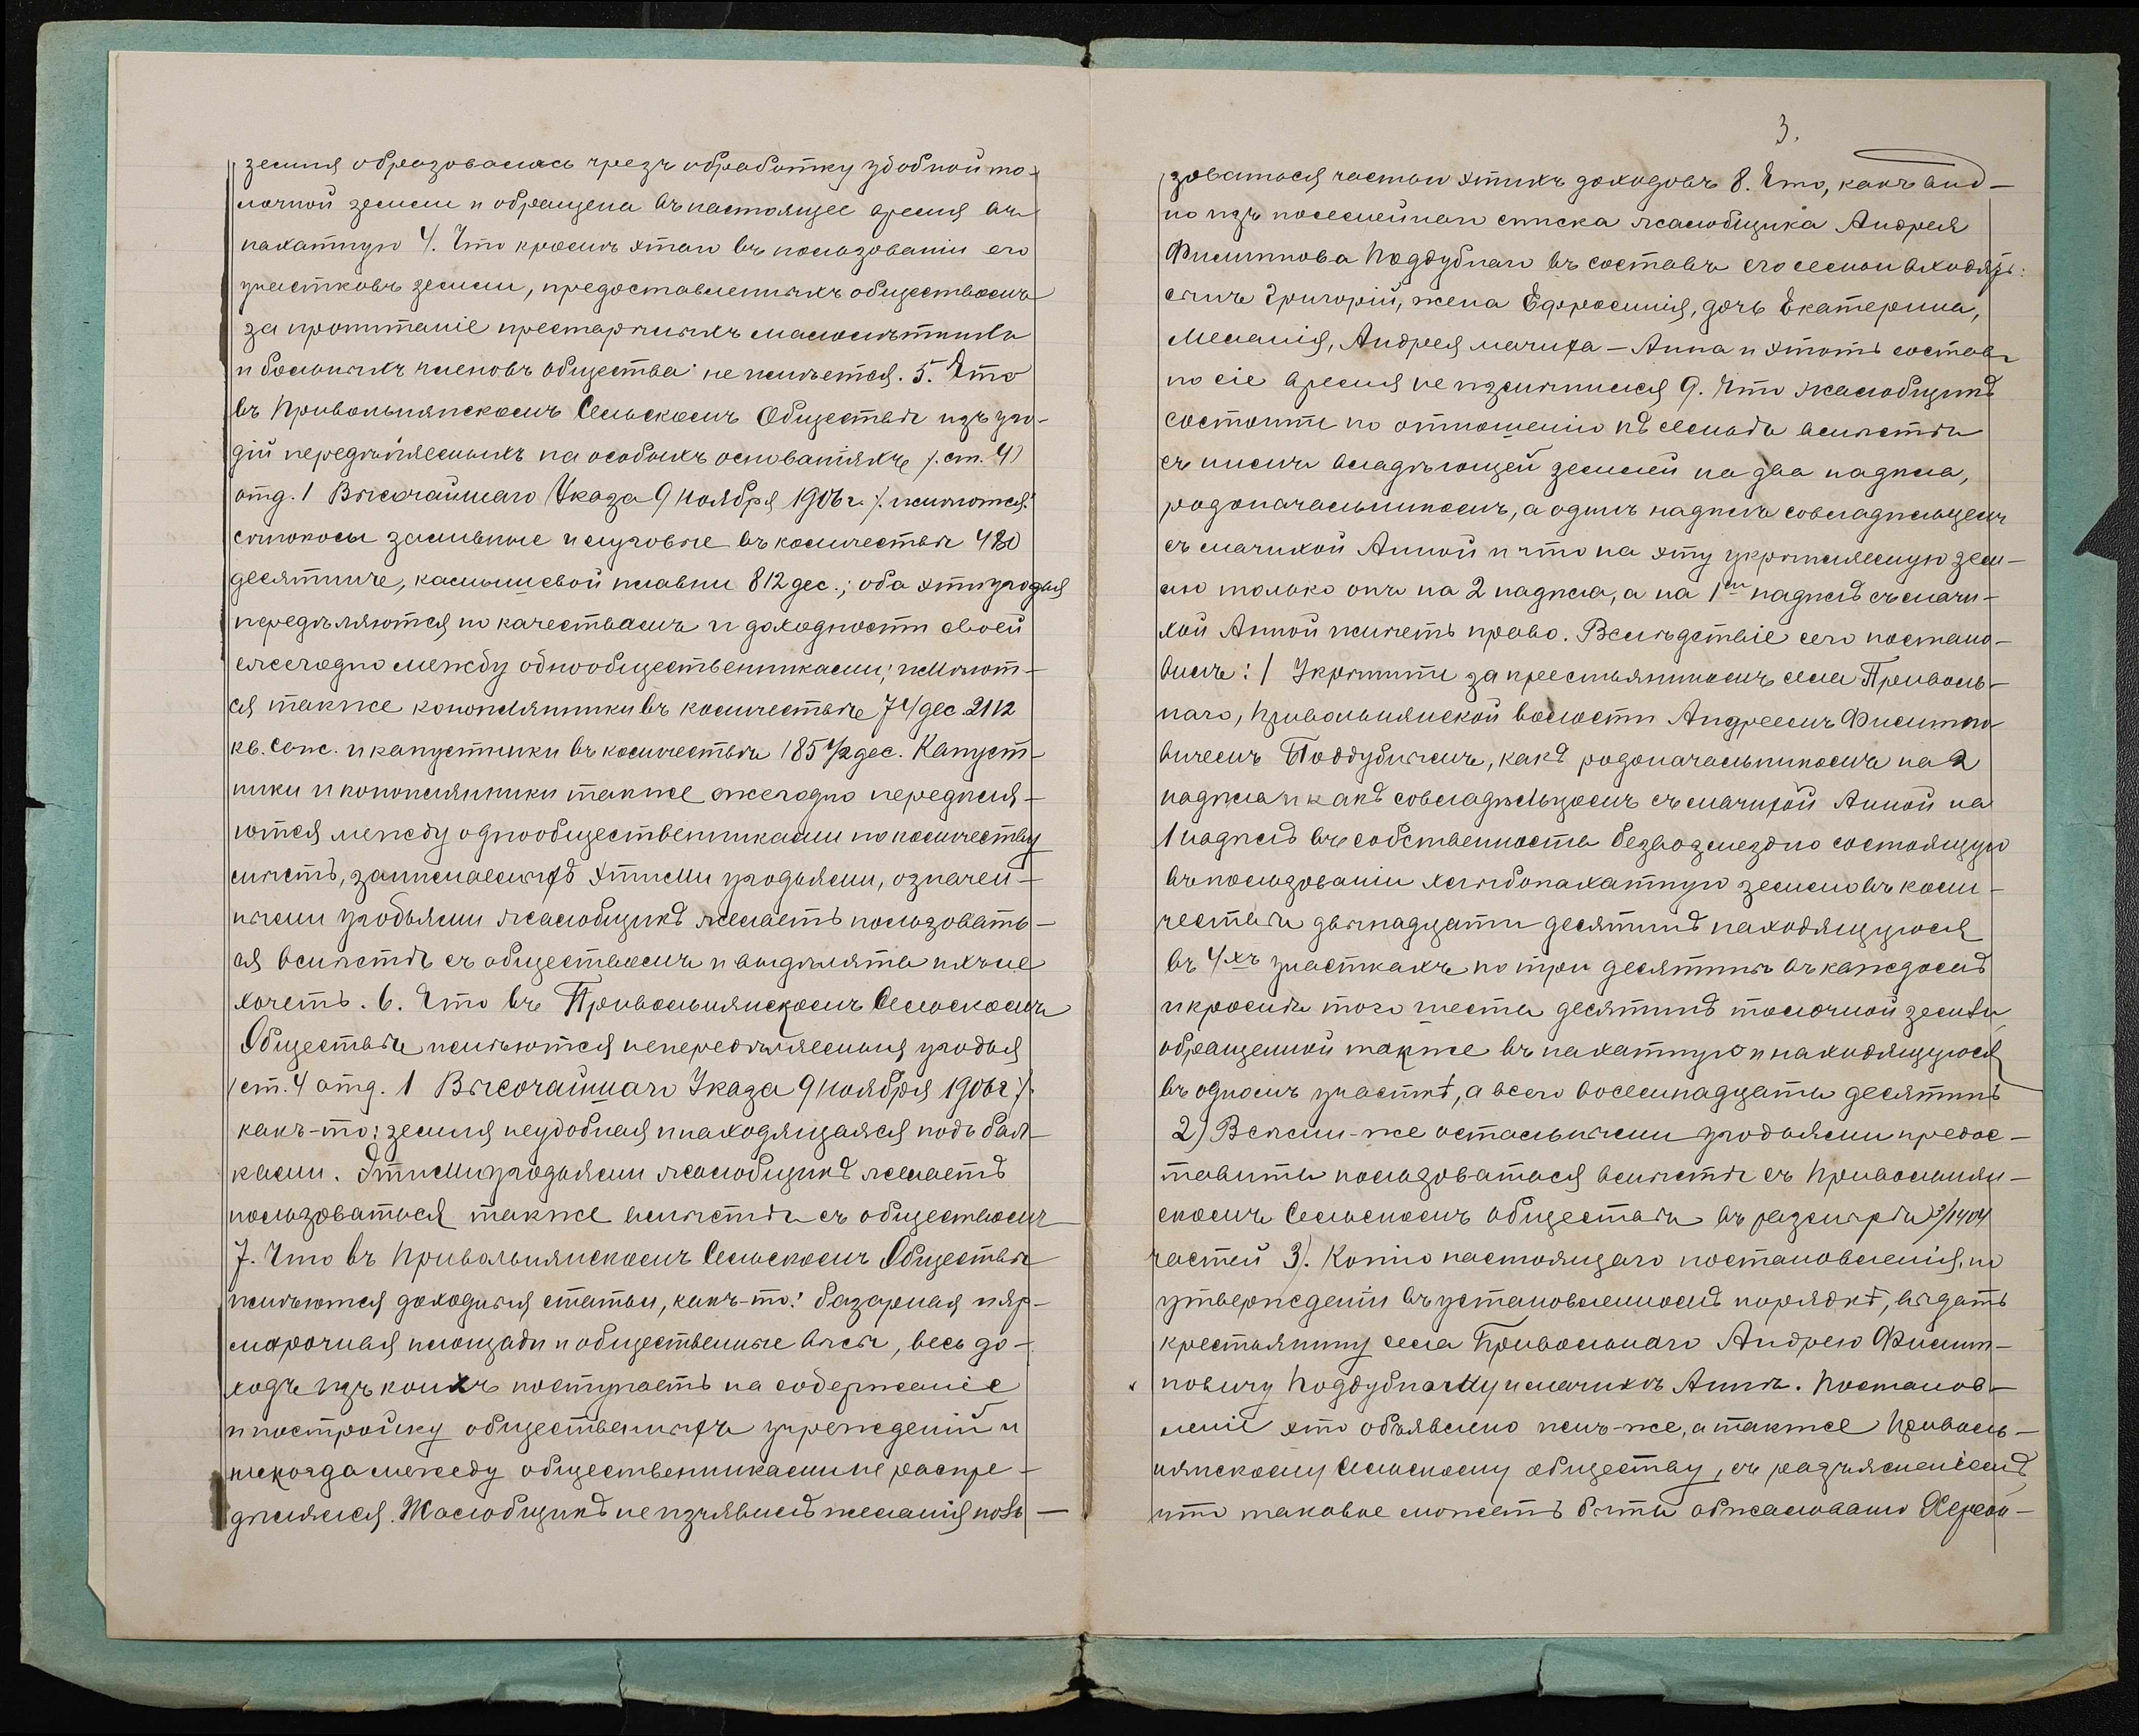 земля образовалась чрезъ обработку удобной то-
лочной земли и обращена въ настоящее время въ
пахатную 4. Что кромѣ этаго въ пользованіи его
участковъ земли, предоставленныхъ обществомъ
за пропитаніе престарѣлыхъ малолѣтнихъ
и больныхъ членовъ общества не имѣется. 5. Что
въ Привольнянскомъ Сельскомъ Обществѣ изъ уго-
дій передѣляемыхъ на особыхъ основаніяхъ /. ст. 4)
отд. 1 Высочайшаго Указа 9 ноября 1906 г. /. имѣются:
сѣнокосы заливные и луговые въ количествѣ 480
десятинъ, камышевой плавни 812 дес.; оба эти угодья
передѣляются по качествамъ и доходности своей
ежегодно между однообщественниками; имѣют-
ся также коноплянники въ количествѣ 74 дес. 2112
кв. саж. и капустники въ количествѣ 185 1/2 дес. Капуст-
ники и коноплянники также ежегодно передѣля-
ются между однообщественниками по количеству
мѣстъ, занимаемыхъ этими угодьями, означен-
ными угодьями жалобщикъ желаетъ пользовать-
ся вмѣстѣ съ обществомъ и выдѣлять ихъ не
хочетъ. 6. Что въ Привольнянскомъ Сельскомъ
Обществѣ имѣются непередѣляемыя угодья
/ст. 4 отд. 1 Высочайшаго Указа 9 ноября 1906 г /.
какъ-то: земля неудобная и находящаяся подъ бал-
ками. Этими угодьями жалобщикъ желаетъ
пользоваться также вмѣстѣ съ обществомъ
7. Что въ Привольнянскомъ Сельскомъ Обществѣ
имѣются доходныя статьи, какъ-то: базарная и яр-
марочная площади и общественные вѣсы, весь до-
ходъ изъ коихъ поступаетъ на содержаніе
и постройку общественныхъ учрежденій и
никогда между общественниками не распре-
дѣлялся. Жалобщикъ не изъявилъ желанія поль-
3.
зоваться частью этихъ доходовъ 8. Что, какъ вид-
но изъ посемейнаго списка жалобщика Андрея
Филиппова Поддубнаго въ составъ его семьи входятъ:
сынъ Григорій, жена Ефросинія, дочь Екатерина,
Меланія, Андрея мачиха - Анна и этотъ составъ
по сіе время не измѣнился 9. Что жалобщикъ
состоитъ по отношенію къ семьѣ вмѣстѣ
съ нимъ владѣющей землей на два надѣла,
родоначальникомъ, а одинъ надѣлъ совладѣльцемъ
съ мачихой Анной и что на эту укрѣпляемую зем-
лю только онъ на 2 надѣла, а на 1ый надѣлъ съ мачи-
хой Анной имѣетъ право. Вслѣдствіе сего постано-
вилъ: / Укрѣпить за крестьяниномъ села Приволь-
наго, Привольнянской волости Андреемъ Филиппо-
вичемъ Поддубнымъ, какъ родоначальникомъ на 2
надѣла и какъ совладѣльцомъ съ мачихой Анной на
1 надѣлъ въ собственность безвозмездно состоящую
въ пользованіи хлѣбопахатную землю въ коли-
чествѣ двѣнадцати десятинъ находящуюся
въ 4хъ участкахъ по три десятины въ каждомъ
и кромѣ того шесть десятинъ толочной земли
обращенной также въ пахатную и находящуюся
въ одномъ участкѣ, а всего восемнадцать десятинъ
2) Всѣми-же остальными угодьями предос-
тавить пользоваться вмѣстѣ съ Привольнян-
скомъ Сельскомъ обществѣ въ размѣрѣ 3/1404
частей 3). Копію настоящаго постановленія, по
утвержденіи въ установленномъ порядкѣ, выдать
крестьянину села Привольнаго Андрею Филип-
повичу Поддубному и мачихѣ Аннѣ. Постанов-
леніе это объявлено имъ-же, а также Приволь-
нянскому Сельскому обществу, съ разъясненіемъ,
что таковое можетъ быть обжаловано Херсон-